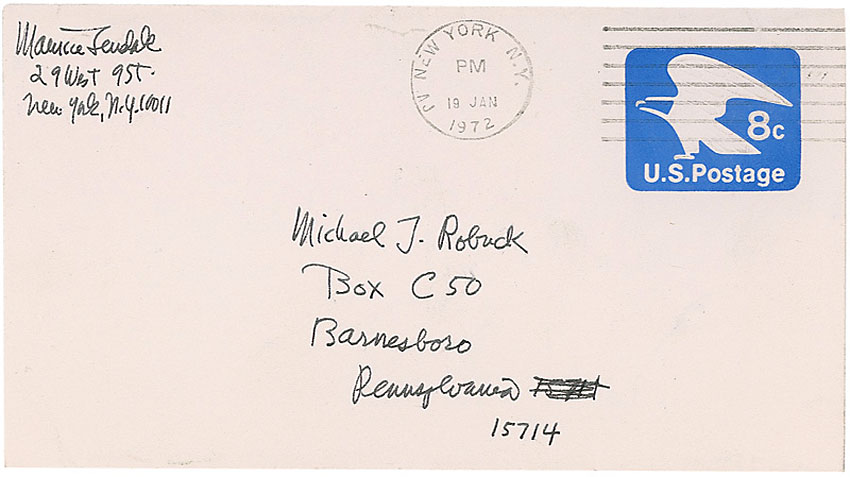 Maurice Sendak
29 West 9 ST.
New York, N.Y. 10011
NEW YORK, N.Y.
PM
19 JAN
1972
8c
U.S. Postage
Michael J. Robuck
Box C 50
Barnesboro
Pennsylvania
15714